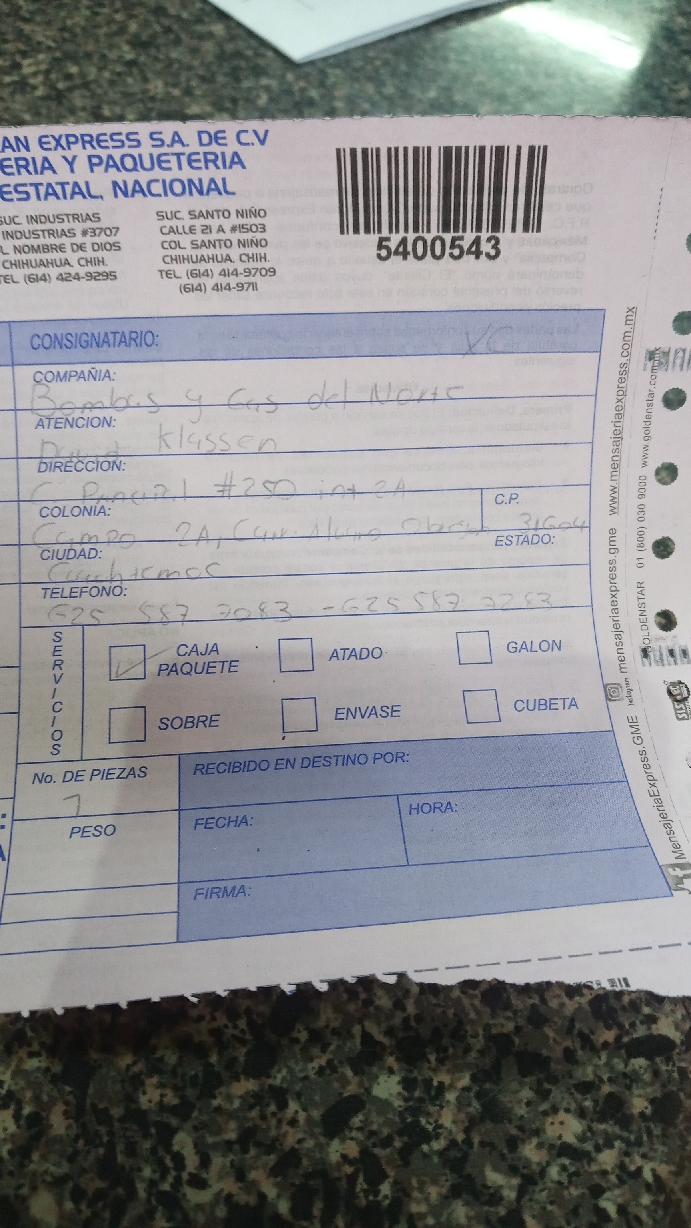 AN EXPRESS S.A. DE C.V
ERIA Y PAQUETERIA
ESTATAL, NACIONAL
SUC. INDUSTRIAS
INDUSTRIAS #3707
L. NOMBRE DE DIOS
CHIHUAHUA, CHIH.
TEL (614) 424-9295
SUC. SANTO NIÑO
CALLE 21 A #1503
COL. SANTO NIÑO
CHIHUAHUA, CHIH.
TEL (614) 414-9709
(614) 414-9711
5400543
CONSIGNATARIO:
COMPAÑIA:
Bombas y Gas del Norte
ATENCION:
David Klassen
DIRECCION:
C. Principal #250 int 2A
COLONIA:
Campo 2A, Carr. Alvaro Obregon
C.P.
31604
CIUDAD:
Cuauhtemoc
ESTADO:
TELEFONO:
625 587 7083 - 625 587 7283
SERVICIOS
CAJA PAQUETE
ATADO
GALON
SOBRE
ENVASE
CUBETA
No. DE PIEZAS
1
PESO
RECIBIDO EN DESTINO POR:
FECHA:
HORA:
FIRMA:
MensajeriaExpress.GME
mensajeriaexpress.gme
www.mensajeriaexpress.com.mx
GOLDENSTAR 01 (800) 030 9000 www.goldenstar.com.mx